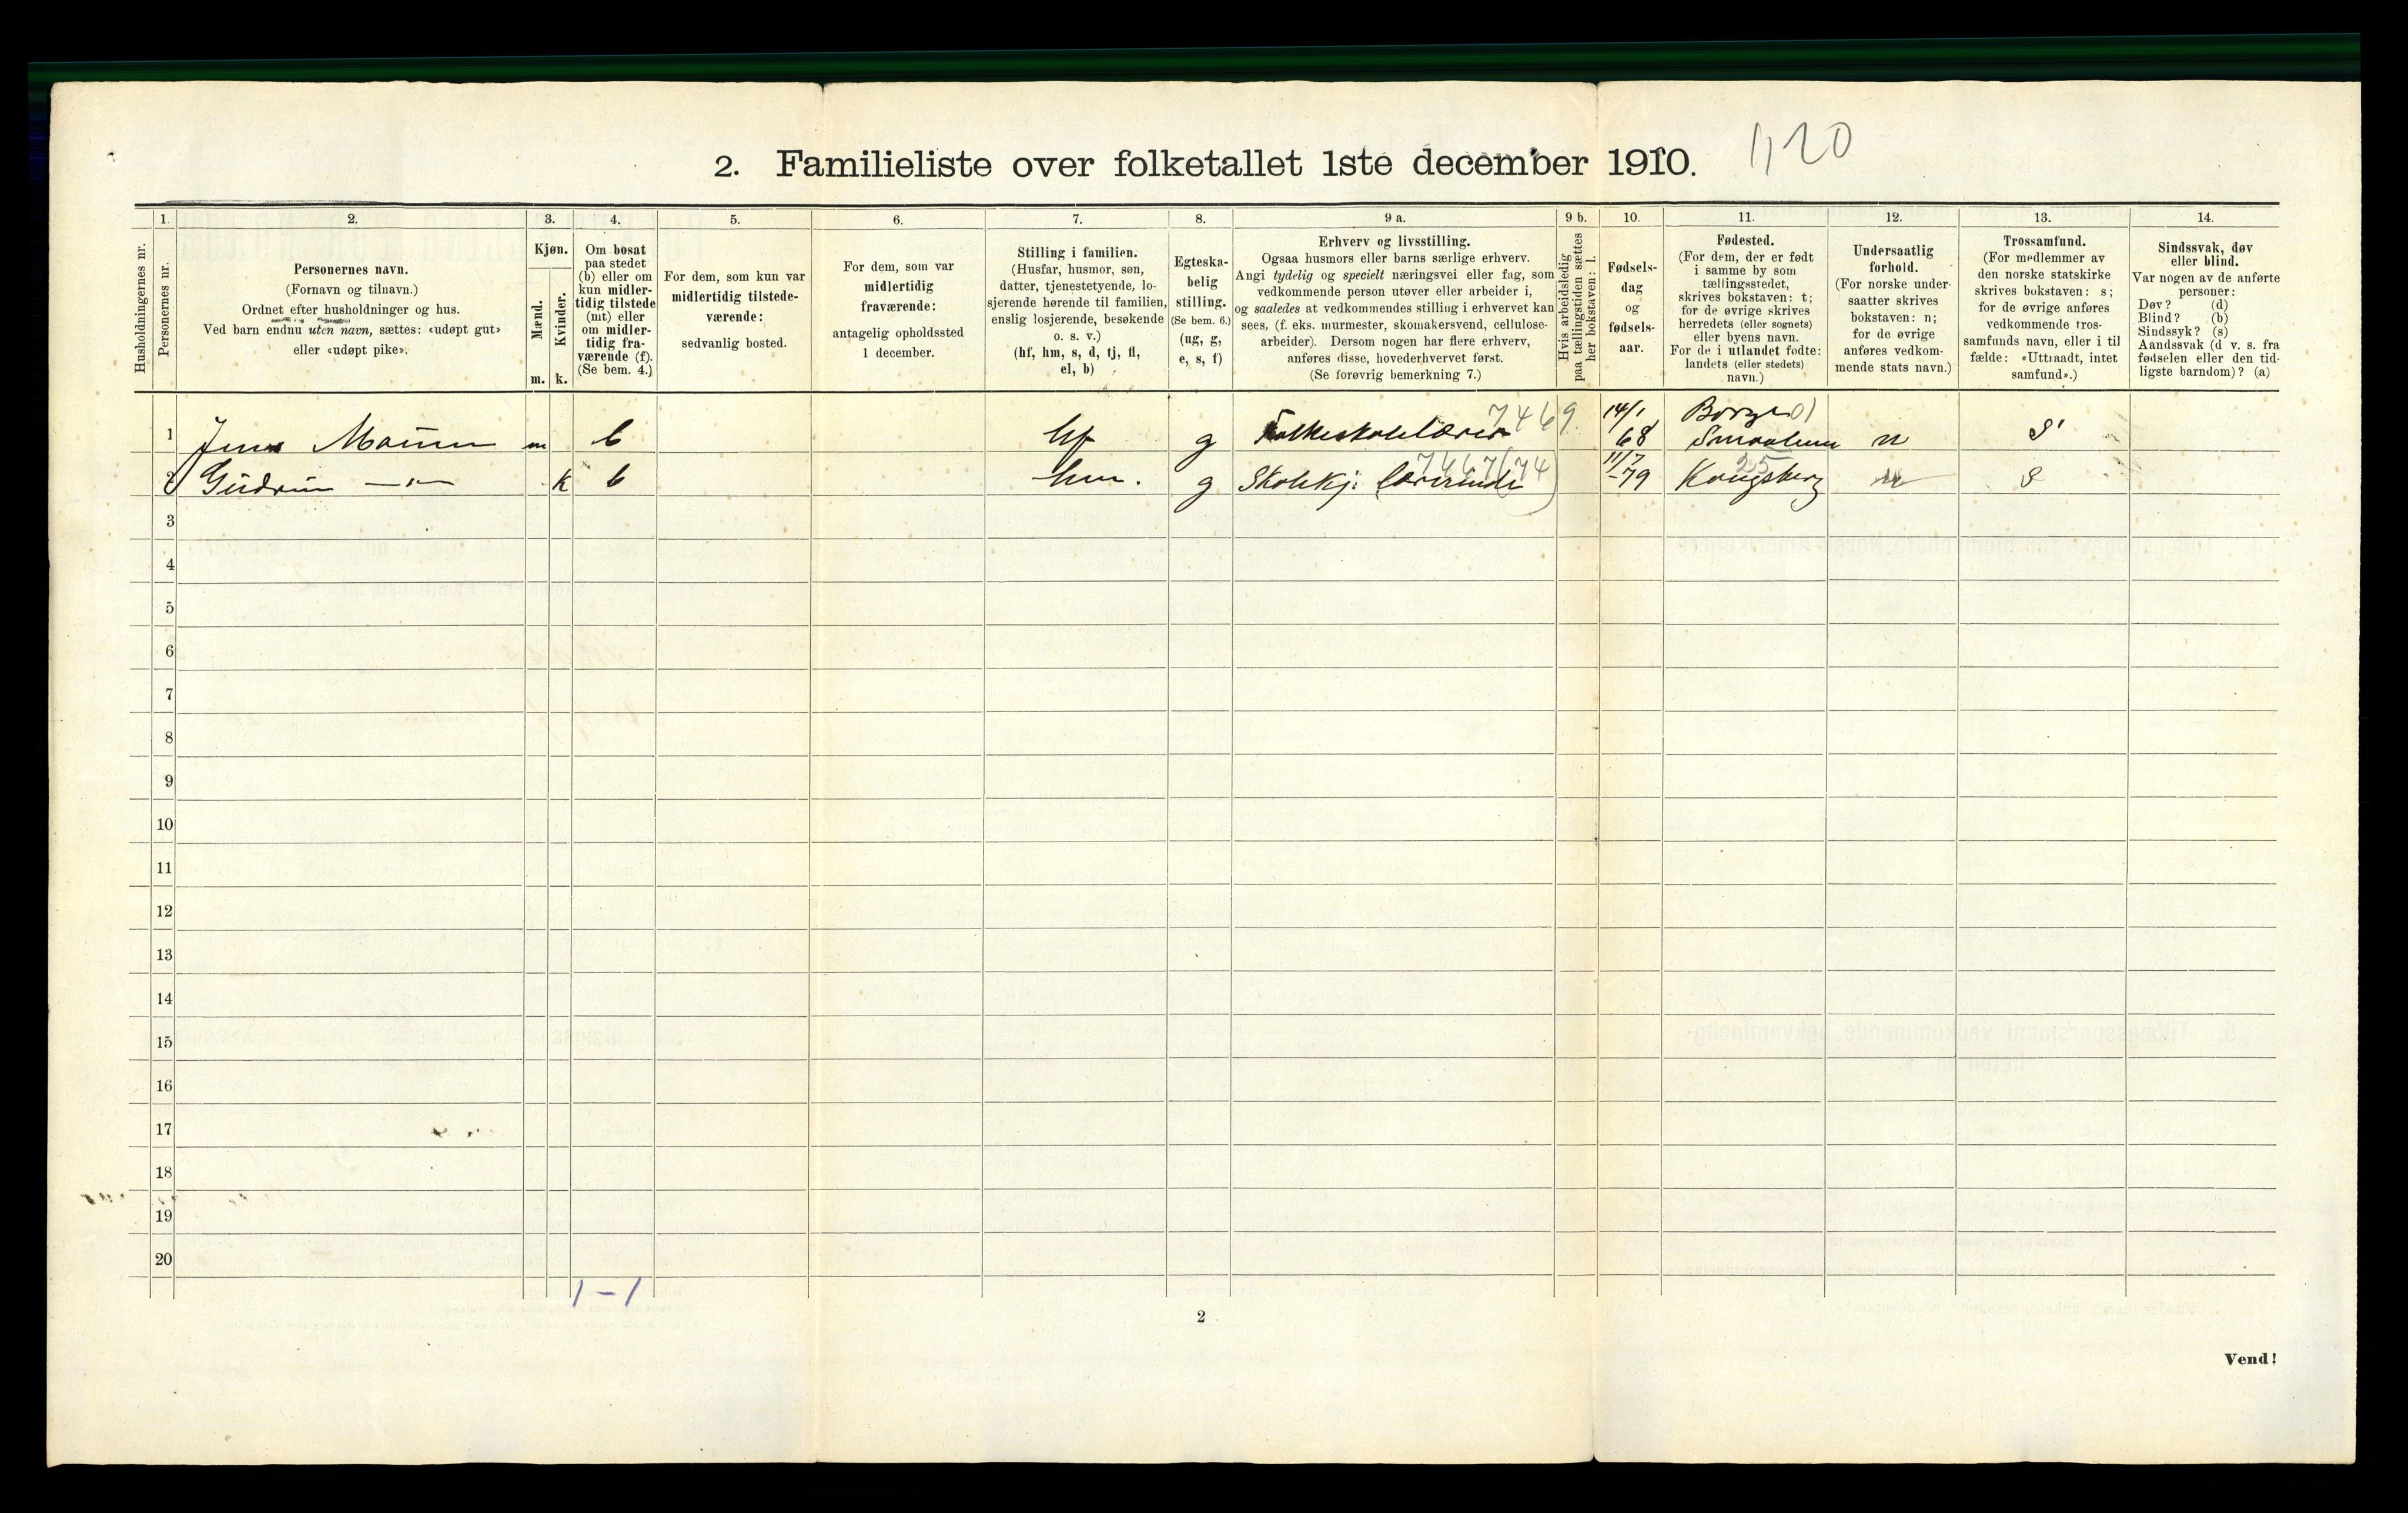 2. Familieliste over folketallet 1ste december 1910.
1. 2. 3. 4. 5. 6. 7. 8. 9 a. 9 b. 10. 11. 12. 13. 14.
Husholdningernes nr.
Personernes nr.
Personernes navn.
(Fornavn og tilnavn.)
Ordnet efter husholdninger og hus.
Ved barn endnu uten navn, sættes: «udøpt gut»
eller «udøpt pike».
Kjøn.
Mænd.
Kvinder.
m. k.
Om bosat
paa stedet
(b) eller om
kun midler-
tidig tilstede
(mt) eller
om midler-
tidig fra-
værende (f).
(Se bem. 4.)
For dem, som kun var
midlertidig tilstede-
værende:
sedvanlig bosted.
For dem, som var
midlertidig
fraværende:
antagelig opholdssted
1 december.
Stilling i familien.
(Husfar, husmor, søn,
datter, tjenestetyende, lo-
sjerende hørende til familien,
enslig losjerende, besøkende
o. s. v.)
(hf, hm, s, d, tj, fl,
el, b)
Egteska-
belig
stilling.
(Se bem. 6.)
(ug, g,
e, s, f)
Erhverv og livsstilling.
Ogsaa husmors eller barns særlige erhverv.
Angi tydelig og specielt næringsvei eller fag, som
vedkommende person utøver eller arbeider i,
og saaledes at vedkommendes stilling i erhvervet kan
sees, (f. eks. murmester, skomakersvend, cellulose-
arbeider). Dersom nogen har flere erhverv,
anføres disse, hovederhvervet først.
(Se forøvrig bemerkning 7.)
Hvis arbeidsledig
paa tællingstiden sættes
her bokstaven: l.
Fødsels-
dag
og
fødsels-
aar.
Fødested.
(For dem, der er født
i samme by som
tællingsstedet,
skrives bokstaven: t;
for de øvrige skrives
herredets (eller sognets)
eller byens navn.
For de i utlandet fødte:
landets (eller stedets)
navn.)
Undersaatlig
forhold.
(For norske under-
saatter skrives
bokstaven: n;
for de øvrige
anføres vedkom-
mende stats navn.)
Trossamfund.
(For medlemmer av
den norske statskirke
skrives bokstaven: s;
for de øvrige anføres
vedkommende tros-
samfunds navn, eller i til
fælde: «Uttraadt, intet
samfund».)
Sindssvak, døv
eller blind.
Var nogen av de anførte
personer:
Døv? (d)
Blind? (b)
Sindssyk? (s)
Aandssvak (d v. s. fra
fødselen eller den tid-
ligste barndom)? (a)
7469. 14/1 Borge 01
1 Jens m b hf g Folkeskolelærer 68 Smaalenn n S
7467(74) 11/7 25
2 Gudrun —"— k b hm. g Skolekj: lærerinde -79 Kongsberg n S
3
4
5
6
7
8
9
10
11
12
13
14
15
16
17
18
19
20
1 – 1
2
Vend!